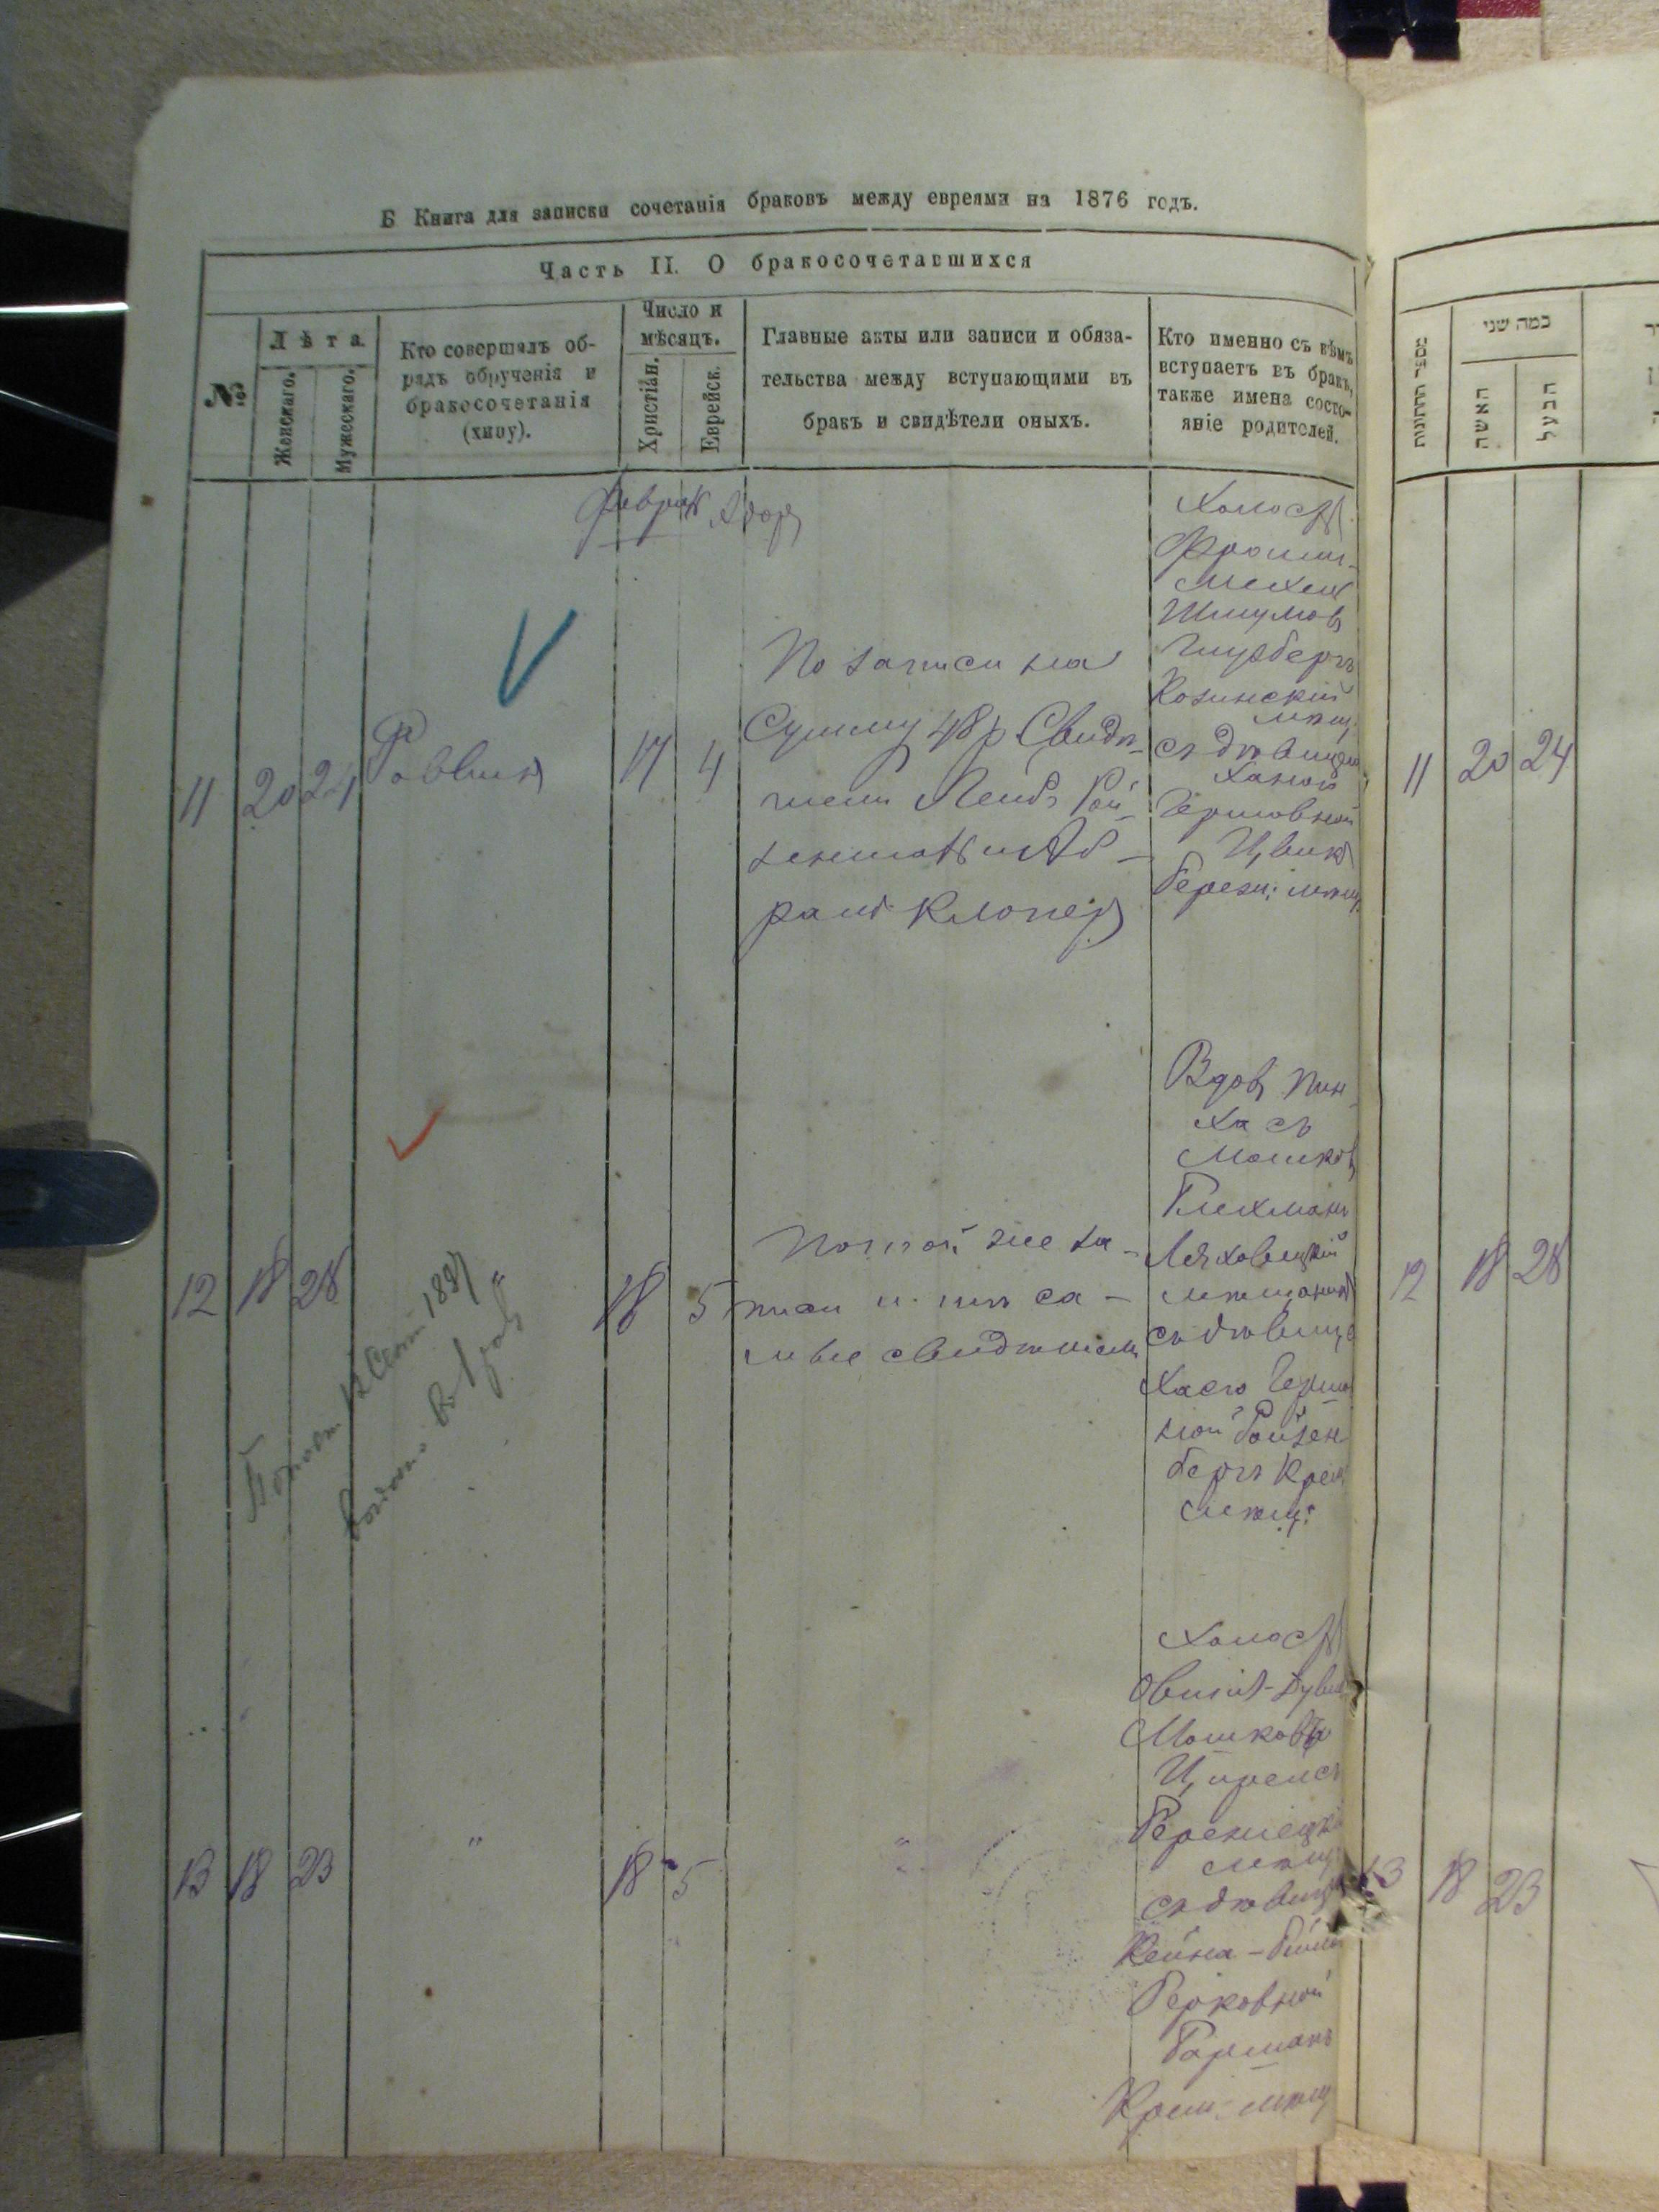 Б Книга для записки сочетанія браковъ между евреями на 1876 годъ.
Часть II. О бракосочетавшихся
№
Лѣта
Женскаго.
Мужескаго.
Кто совершалъ об-
рядъ обрученія и
бракосочетанія
(хипу).
Число и
мѣсяцъ.
Христіан.
Еврейск.
Главные акты или записи и обяза-
тельства между вступающими въ
бракъ и свидѣтели оныхъ.
Кто именно съ кѣмъ
вступаетъ въ бракъ,
также имена состо-
яніе родителей.
Феврал Адар
11 20 24
Раввинъ
17 4
По записи на
Сумму 48 р Свидѣ-
тели Лейбъ Рой-
рамъ Клопер
Холост
Фроим-
Шмулов
Козинскій
мѣщ.
съ дѣвицею
Ханой
Гершовной
Цвик
Березн: мѣщ.
12 18 28
18 5
По той же за-
писи и тѣ са-
мые свидѣтели
Вдов Пин-
хасъ
Мошков
Блехманъ
Ляховецкій
мѣщанин
съ дѣвице
Хаею Герш
ной Ройзен
бергъ Крем
мѣщ:
1897
13 18 23
"
18 5
"
Холост
Мошковъ
Березнецкі
мѣщ.
съ дѣвице
Берковной
Крем: мѣщ
מספר החתונות
כמה שני
האשה
הבעל
11 20 24
12 18 28
13 18 23